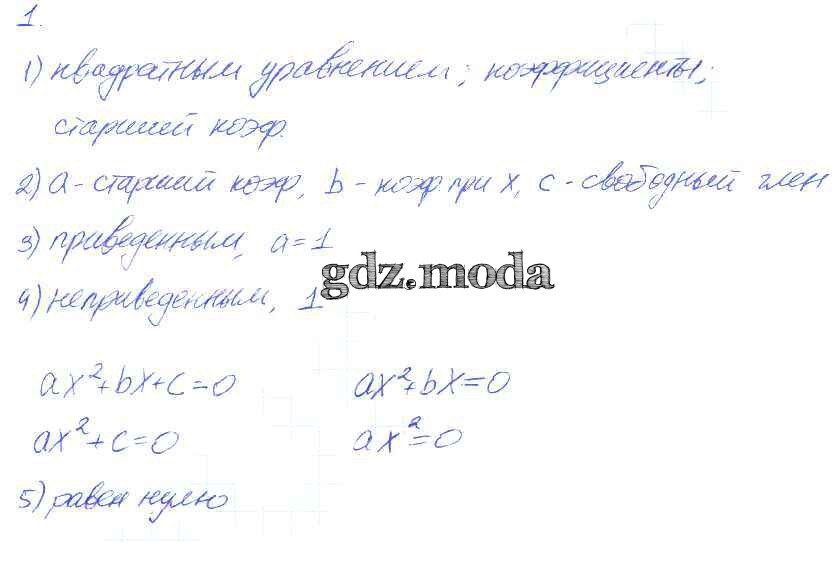 1.
1) квадратным уравнением; коэффициенты;
старший коэф.
2) a - старший коэф, b - коэф при x, c - свободный член
3) приведенным, a=1
gdz.moda
4) неприведенным, 1
ax²+bx+c=0 ax²+bx=0
ax²+c=0 ax²=0
5) равен нулю